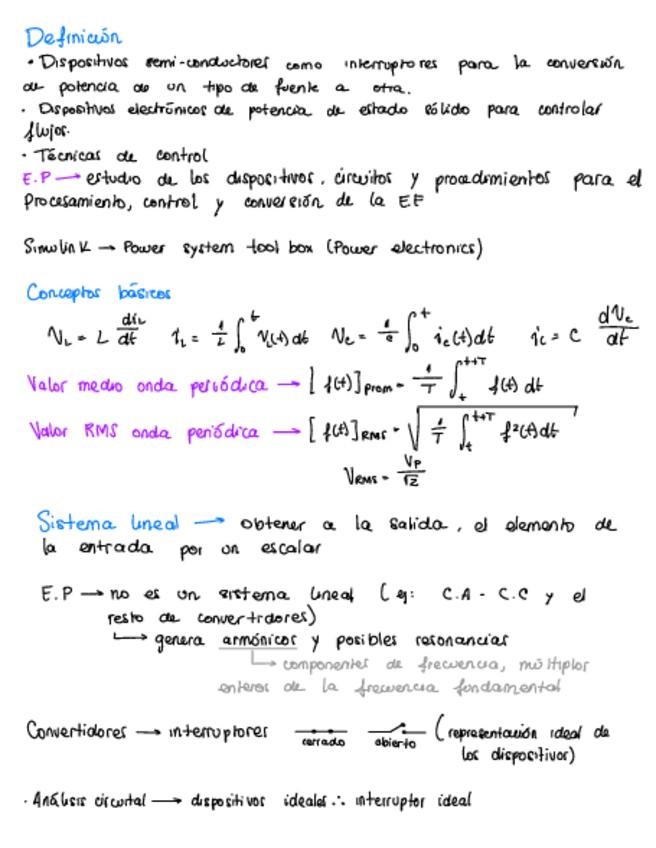 Definición
• Dispositivos semi-conductores como interruptores para la conversión
de potencia de un tipo de fuente a otra.
· Dispositivos electrónicos de potencia de estado sólido para controlar
flujos.
· Técnicas de control
E.P → estudio de los dispositivos, circuitos y procedimientos para el
Procesamiento, control y conversión de la EE
Simulink → Power system tool box (Power electronics)
Conceptos básicos
V_L = L di_L/dt   i_L = 1/L ∫₀ᵗ V_L(t) dt   V_c = 1/C ∫₀ᵗ i_c(t) dt   i_c = C dV_c/dt
Valor medio onda periódica → [f(t)]prom = 1/T ∫ₜᵗ⁺ᵀ f(t) dt
Valor RMS onda periódica → [f(t)]RMS = √(1/T ∫ₜᵗ⁺ᵀ f²(t) dt)
V_RMS = Vp/√2
Sistema lineal → obtener a la salida, el elemento de
la entrada por un escalar
E.P → no es un sistema lineal (ej: C.A - C.C y el
resto de convertidores)
↳ genera armónicos y posibles resonancias
↳ componentes de frecuencia, múltiplos
enteros de la frecuencia fundamental
Convertidores → interruptores cerrado abierto (representación ideal de
los dispositivos)
· Análisis circuital → dispositivos ideales ∴ interruptor ideal